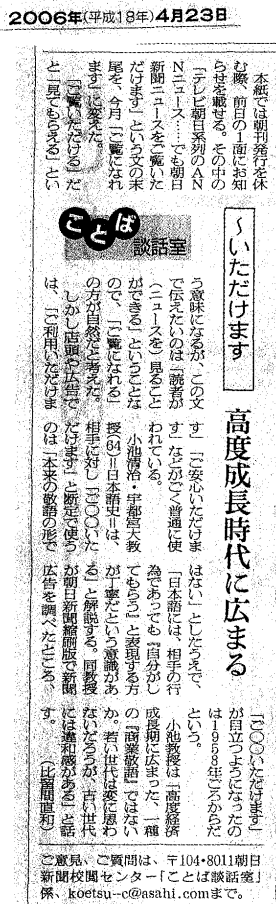 2006年(平成18年)4月23日
ことば
談話室
〜いただけます
高度成長時代に広まる
本紙では朝刊発行を休
む際、前日の1面にお知
らせを載せる。その中の
「テレビ朝日系列のAN
Nニュース……でも朝日
新聞ニュースをご覧いた
だけます」という文の末
尾を、今月「ご覧になれ
ます」に変えた。
「ご覧いただける」だ
と「見てもらえる」とい
う意味になるが、この文
で伝えたいのは「読者が
(ニュースを)見ること
ができる」ということな
ので、「ご覧になれる」
の方が自然だと考えた。
しかし店頭や広告で
は、「ご利用いただけま
す」「ご安心いただけま
す」などがごく普通に使
われている。
小池清治・宇都宮大教
授(64)=日本語史=は、
相手に対し「ご〇〇いた
だけます」と断定で使う
のは「本来の敬語の形で
はない」としたうえで、
「日本語には、相手の行
為であっても『自分がし
てもらう』と表現する方
が丁寧だという意識があ
る」と解説する。同教授
が朝日新聞縮刷版で新聞
広告を調べたところ、
「ご〇〇いただけます」
が目立つようになったの
は1958年ごろからだ
という。
小池教授は「高度経済
成長期に広まった、一種
の『商業敬語』ではない
か。若い世代は変に思わ
ないだろうが、古い世代
には違和感がある」と話
す。(比留間直和)
ご意見、ご質問は、〒104・8011朝日
新聞校閲センター「ことば談話室」
係、koetsu--c@asahi.comまで。